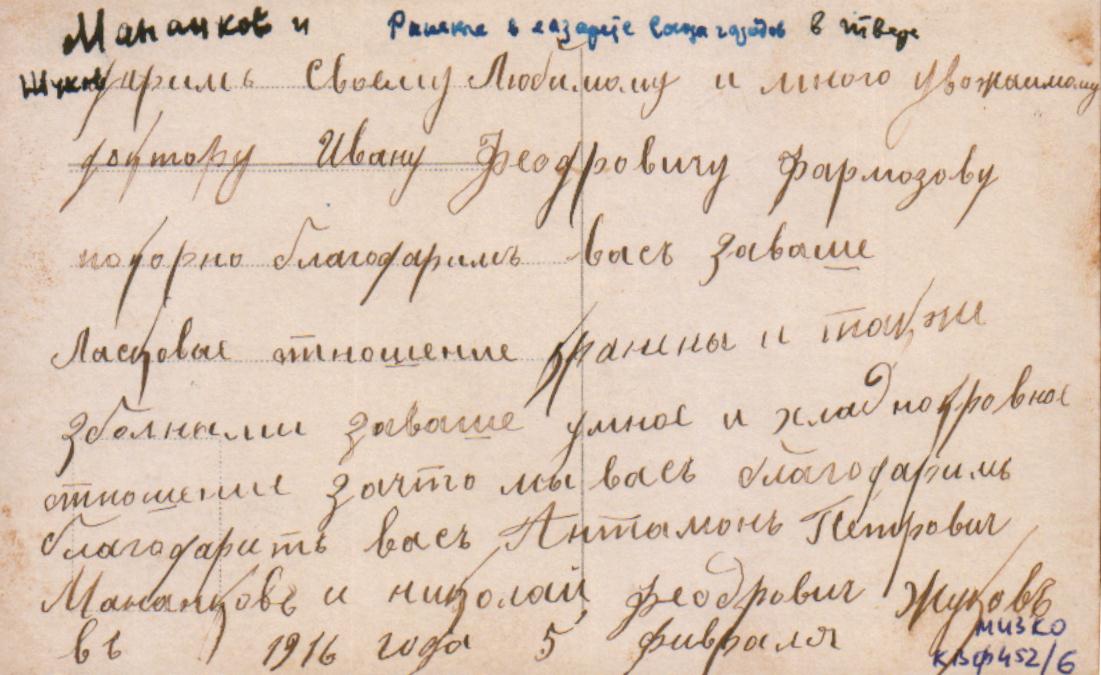 Мананков и Раненые в лазарете Союза городов в Твере
Жуков
Даримъ Своему Любимому и много уважаимому
доктору Ивану Феодровичу Фармозову
покорно благодаримъ васъ заваше
Ласковые отношение кранины и также
зболными заваше умное и хладнокровное
отношение зачто мы васъ благодаримъ
благодарить васъ Антамонъ Петрович
Мананковъ и николай феодрович Жуковъ
въ 1916 года 5 февраля
МИЗКО
КВФ452/6